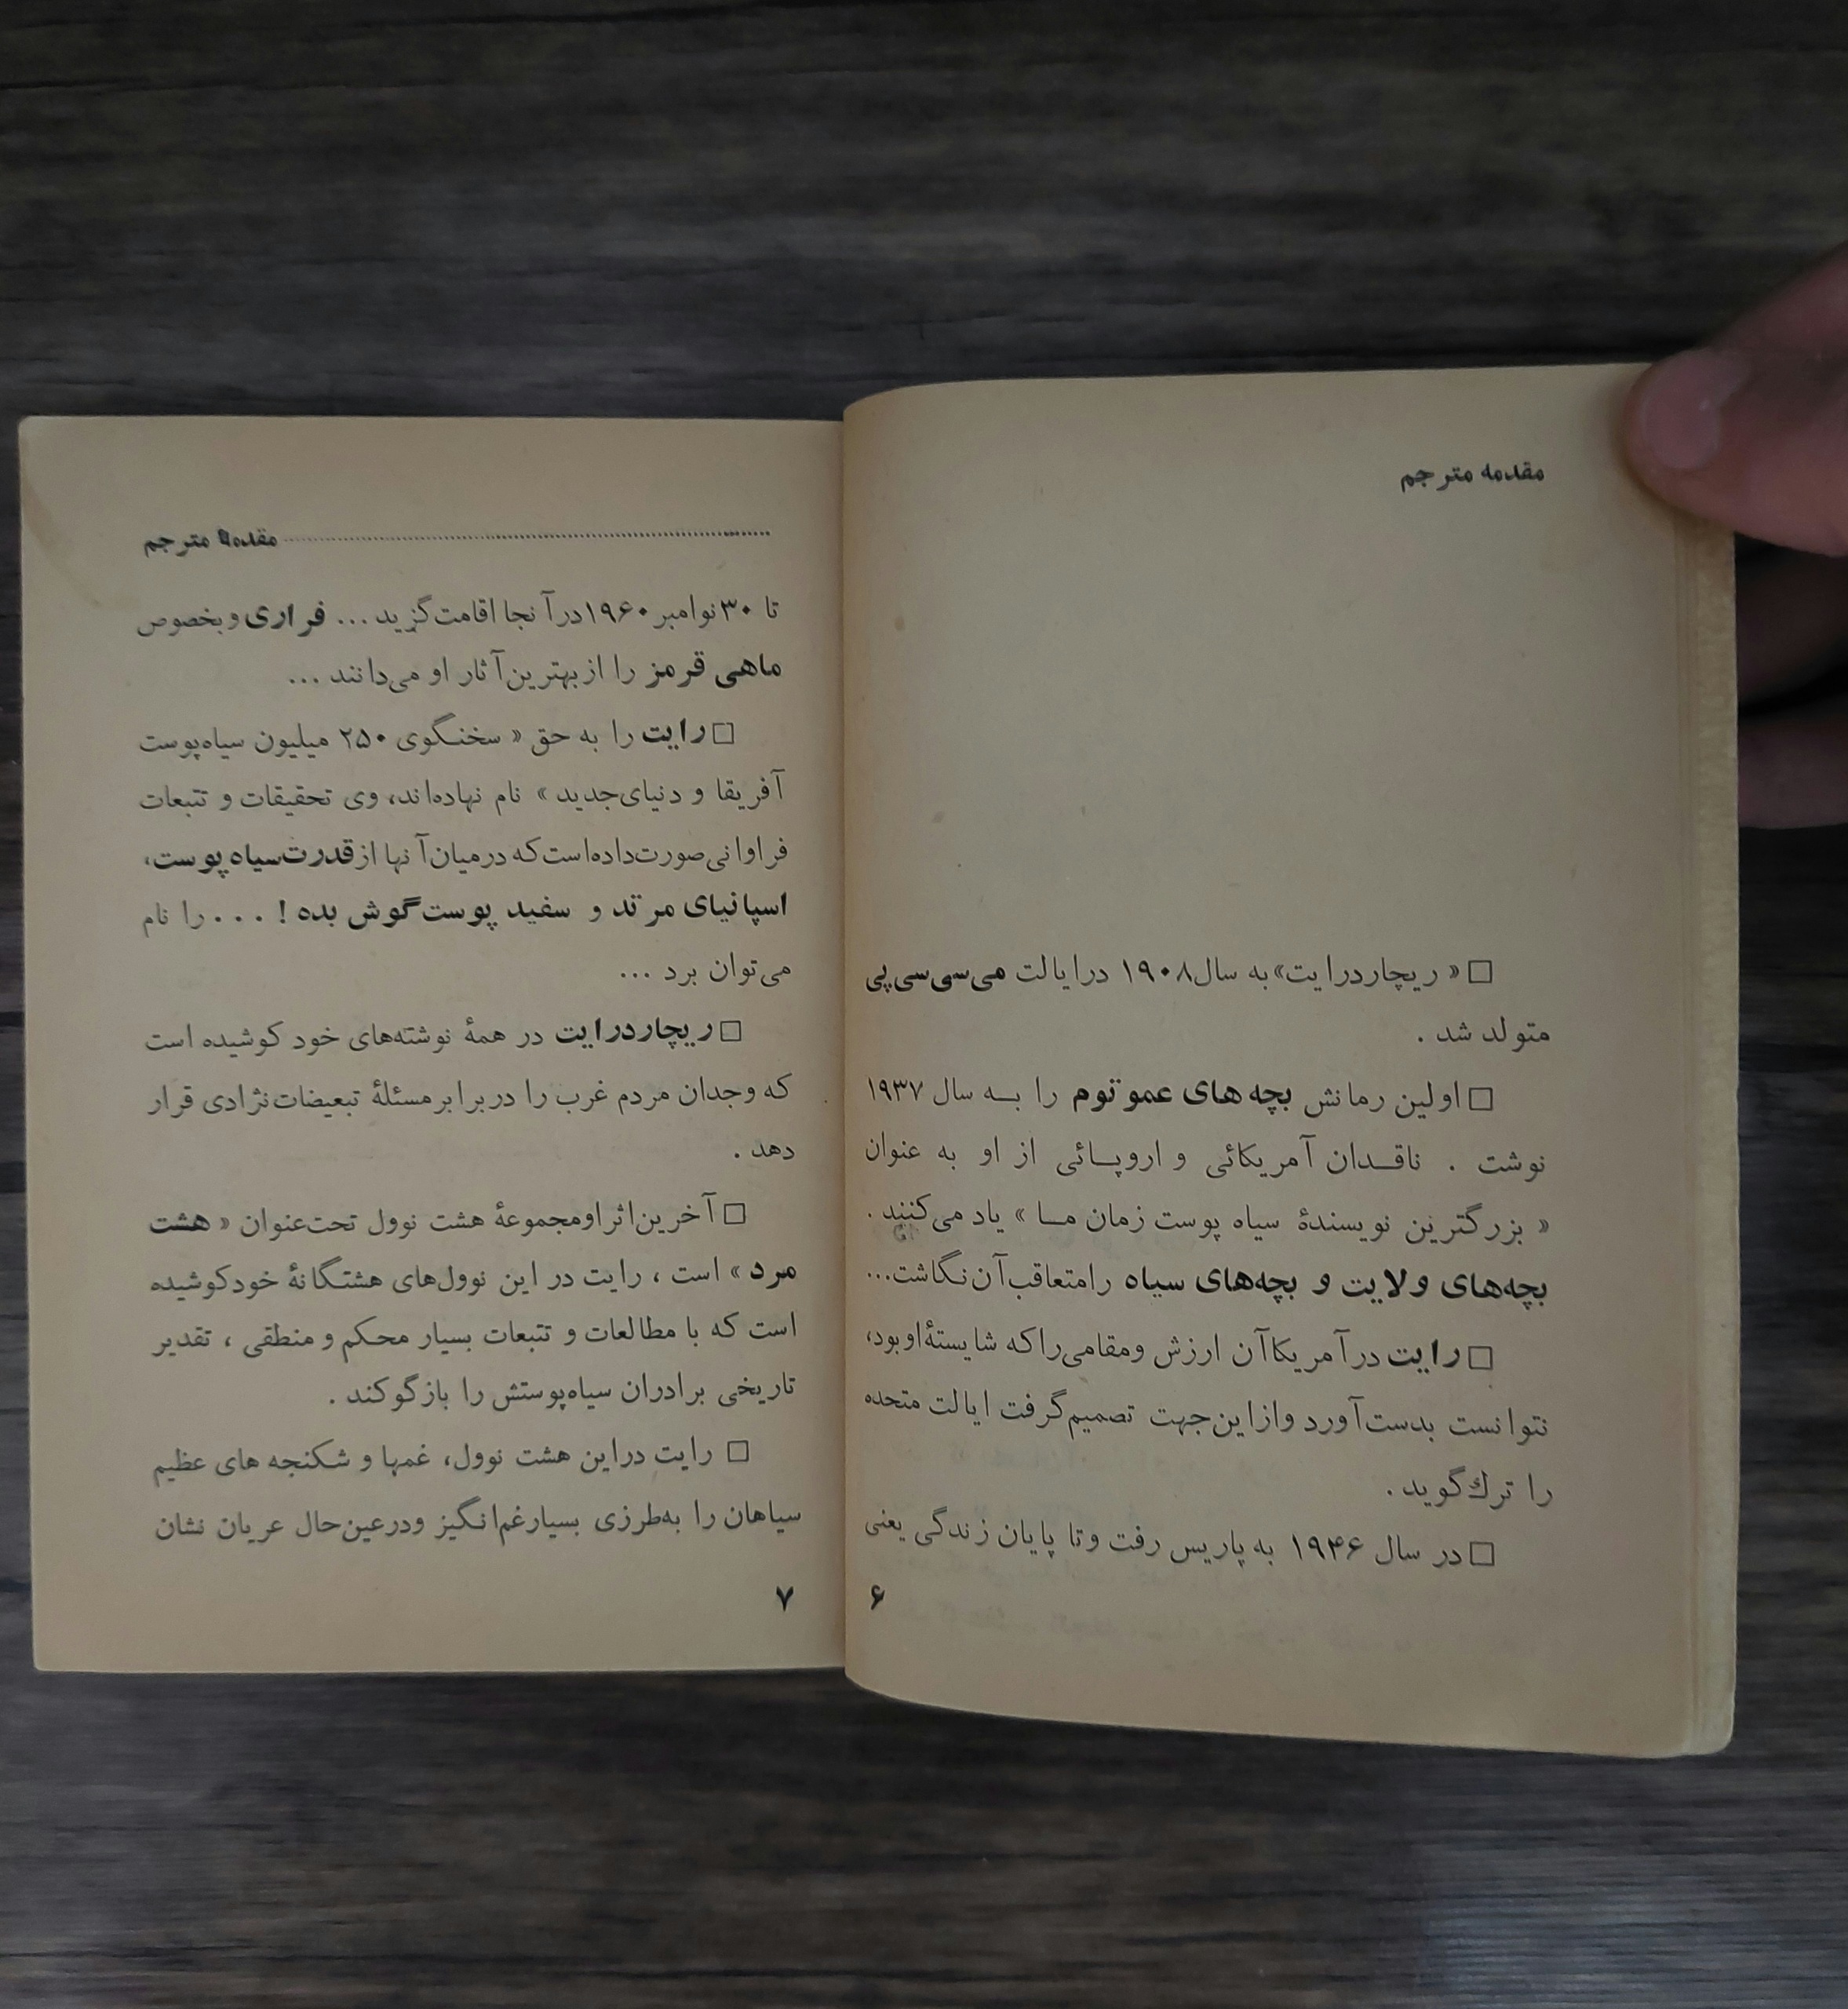 مقدمه مترجم
□ « ریچاردرایت» به سال ۱۹۰۸ درایالت می‌سی‌سی‌پی
متولد شد .
□ اولین رمانش بچه‌های عموتوم را بــه سال ۱۹۳۷
نوشت . ناقــدان آمریکائی و اروپــائی از او به عنوان
« بزرگترین نویسندهٔ سیاه پوست زمان مــا » یاد می‌کنند .
بچه‌های ولایت و بچه‌های سیاه رامتعاقب‌آن‌نگاشت...
□ رایت درآمریکاآن ارزش ومقامی‌راکه شایستهٔ‌اوبود،
نتوانست بدست‌آورد وازاین‌جهت تصمیم‌گرفت ایالت متحده
را ترك‌گوید .
□ در سال ۱۹۴۶ به پاریس رفت وتا پایان زندگی یعنی
۶
مقدمهٔ مترجم
تا ۳۰ نوامبر ۱۹۶۰ درآنجا اقامت‌گزید ... فراری وبخصوص
ماهی قرمز را ازبهترین‌آثار او می‌دانند ...
□ رایت را به حق « سخنگوی ۲۵۰ میلیون سیاه‌پوست
آفریقا و دنیای‌جدید » نام نهاده‌اند، وی تحقیقات و تتبعات
فراوانی‌صورت‌داده‌است‌که درمیان‌آنها ازقدرت‌سیاه پوست،
اسپانیای مرتد و سفید پوست‌گوش بده ! . . . را نام
می‌توان برد ...
□ ریچاردرایت در همهٔ نوشته‌های خود کوشیده است
که وجدان مردم غرب را دربرابرمسئلهٔ تبعیضات‌نژادی قرار
دهد .
□ آخرین‌اثراومجموعهٔ هشت نوول تحت‌عنوان « هشت
مرد » است ، رایت در این نوول‌های هشتگانهٔ خودکوشیده
است که با مطالعات و تتبعات بسیار محکم و منطقی ، تقدیر
تاریخی برادران سیاه‌پوستش را بازگوکند .
□ رایت دراین هشت نوول، غمها و شکنجه های عظیم
سیاهان را به‌طرزی بسیارغم‌انگیز ودرعین‌حال عریان نشان
۷